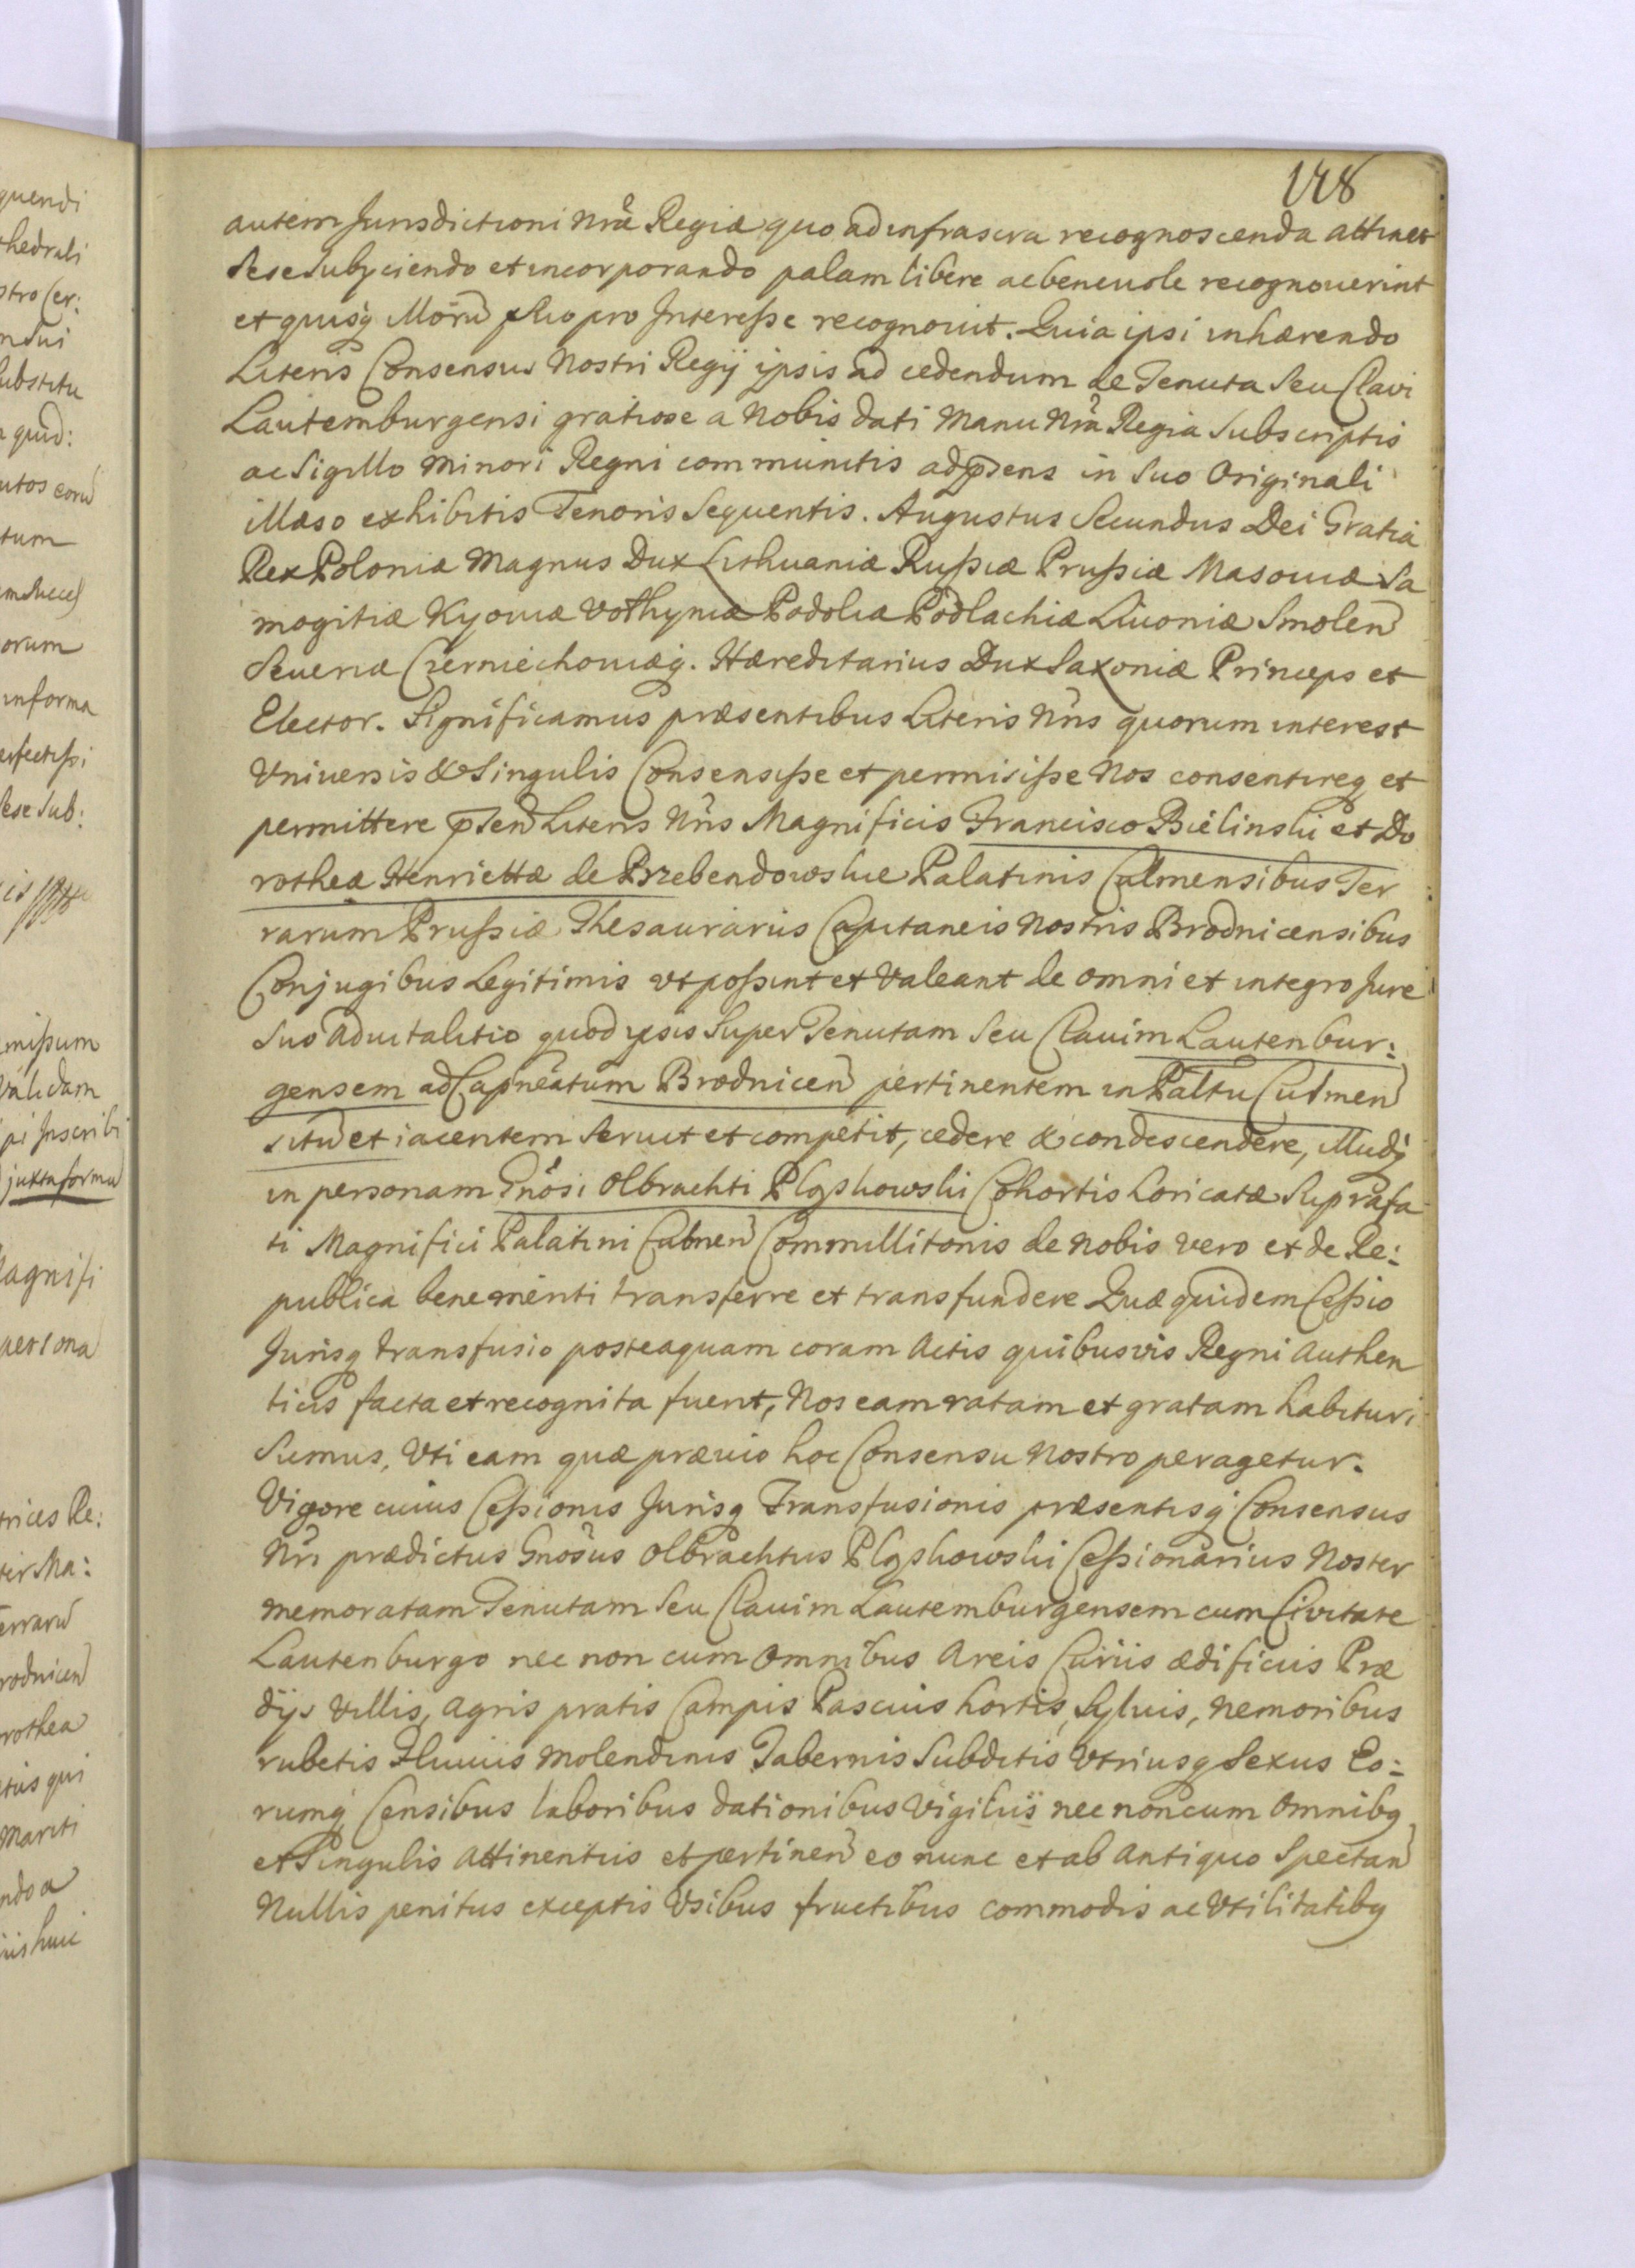 148
autem Jurisdictioni Nrae Regiae quo ad infrascra recognoscenda attinet
Sese Subyciendo et incorporando palam libere ac beneuole recognouerint
et quisq Illorū pro Interesse recognouit. Quia ipsi inhaerendo
Literis Consensus Nostri Regij ipsis ad cedendum de Tenuta Seu Clavi
Lautemburgensi gratiose a Nobis dati Manu Nra Regia Subscriptis
ac Sigillo Minori Regni communitis ad psens in Suo Originali
illaeso exhibitis Tenoris Sequentis. Augustus Secundus Dei Gratia
Rex Poloniae Magnus Dux Lithuaniae Russiae Prussiae Masouiae Sa
mogitiae Kyouiae Vothyniae Podoliae Podlachiae Liuoniae Smolen
Seueriae Czerniechouiaeq. Haereditarius Dux Saxoniae Princeps et
Elector. Significamus praesentibus Literis Nris quorum interest
Vniuersis & Singulis Consensisse et permisisse Nos consentireq et
permittere psen Literis Nris Magnificis Francisco Bielinski et Do
rotheae Henriettae de Przebendowskie Palatinis Culmensibus Ter
rarum Prussiae Thesaurariis Capitaneis Nostris Brodnicensibus
Conjugibus Legitimis vt possint et Valeant de omni et integro Jure
Suo aduitalitio quod ipsis Super Tenutam Seu Clauim Lautenbur:
gensem ad Capneatum Brodnicen pertinentem in Paltu Culmen
sitū et iacentem Seruit et competit, cedere & condescendere, illudq
in personam Gnosi Olbrachti Plaskowski Cohortis Loricatae Suprafa
ti Magnifici Palatini Culmen Commillitonis de Nobis vero et de Re:
publica bene meriti transferre et transfundere Quae quidem Cessio
Jurisq transfusio posteaquam coram Actis quibusvis Regni Authen
ticis facta et recognita fuerit, Nos eam ratam et gratam habituri
Sumus, Vti eam quae praeuio hoc Consensu Nostro peragetur.
Vigore cuius Cessionis Jurisq Transfusionis praesentisq Consensus
Nri praedictus Gnosus Olbrachtus Plaskowski Cessionarius Noster
memoratam Tenutam Seu Clauim Lautemburgensem cum Civitate
Lautenburgo nec non cum Omnibus Areis Curiis aedificiis Prae
dijs Villis, agris pratis Campis Pascuis hortis, Syluis, Nemoribus
rubetis Fluuiis Molendinis Tabernis Subditis Vtriusq Sexus Eo:
rumq Censibus laboribus dationibus Vigiliis nec non cum Omnibq
et Singulis attinentiis et pertinen eo nunc et ab Antiquo Spectan
Nullis penitus exceptis Vsibus fructibus commodis ac Vtilitatibq